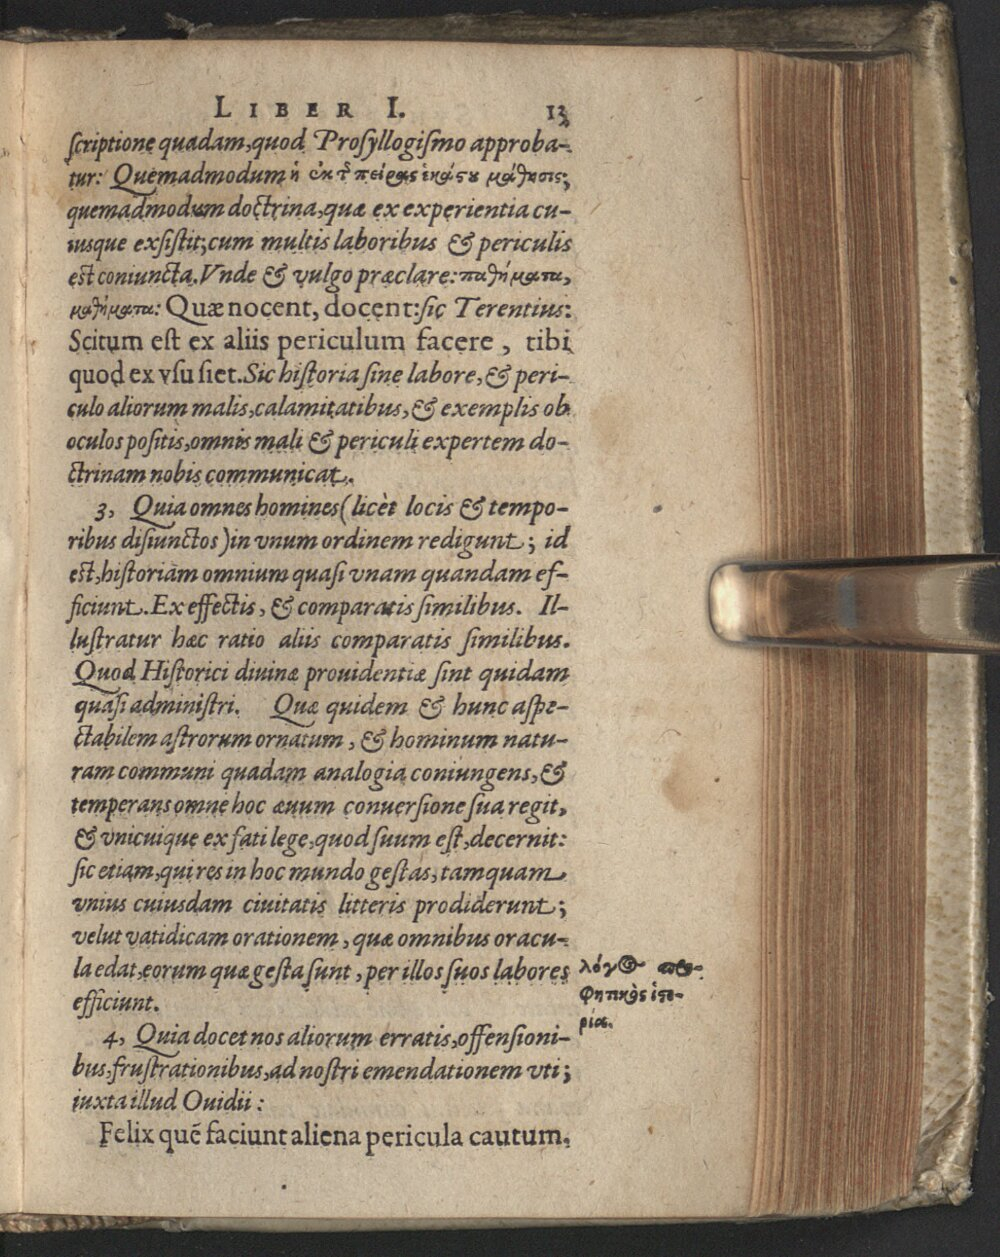 LIBER I. 13
ſcriptione quadam, quod Proſyllogiſmo approba-
tur: Quemadmodum ἡ ἐκ τ͂ πείρας ἑκάστου μάθησις;
quemadmodum doctrina, quæ ex experientia cu-
iusque exſiſtit; cum multis laboribus & periculis
eſt coniuncta. Vnde & vulgo præclare: παθήματα,
μαθήματα: Quæ nocent, docent: ſic Terentius:
Scitum eſt ex aliis periculum facere, tibi
quod ex vſu ſiet. Sic hiſtoria ſine labore, & peri-
culo aliorum malis, calamitatibus, & exemplis ob
oculos poſitis, omnis mali & periculi expertem do-
ctrinam nobis communicat.
3, Quia omnes homines (licèt locis & tempo-
ribus diſiunctos) in vnum ordinem redigunt; id
eſt, hiſtoriam omnium quaſi vnam quandam ef-
ficiunt. Ex effectis, & comparatis ſimilibus. Il-
luſtratur hæc ratio aliis comparatis ſimilibus.
Quod Hiſtorici diuinæ prouidentiæ ſint quidam
quaſi adminiſtri. Quæ quidem & hunc aſpe-
ctabilem aſtrorum ornatum, & hominum natu-
ram communi quadam analogia coniungens, &
temperans omne hoc æuum conuerſione ſua regit,
& vnicuique ex fati lege, quod ſuum eſt, decernit:
ſic etiam, qui res in hoc mundo geſtas, tamquam
vnius cuiusdam ciuitatis litteris prodiderunt;
velut vatidicam orationem, quæ omnibus oracu-
la edat, eorum quæ geſta ſunt, per illos ſuos labores
efficiunt.
λόγος προ-
φητικὸς ἱστο-
ρία.
4, Quia docet nos aliorum erratis, offenſioni-
bus, fruſtrationibus, ad noſtri emendationem vti;
iuxta illud Ouidii:
Felix quē faciunt aliena pericula cautum.